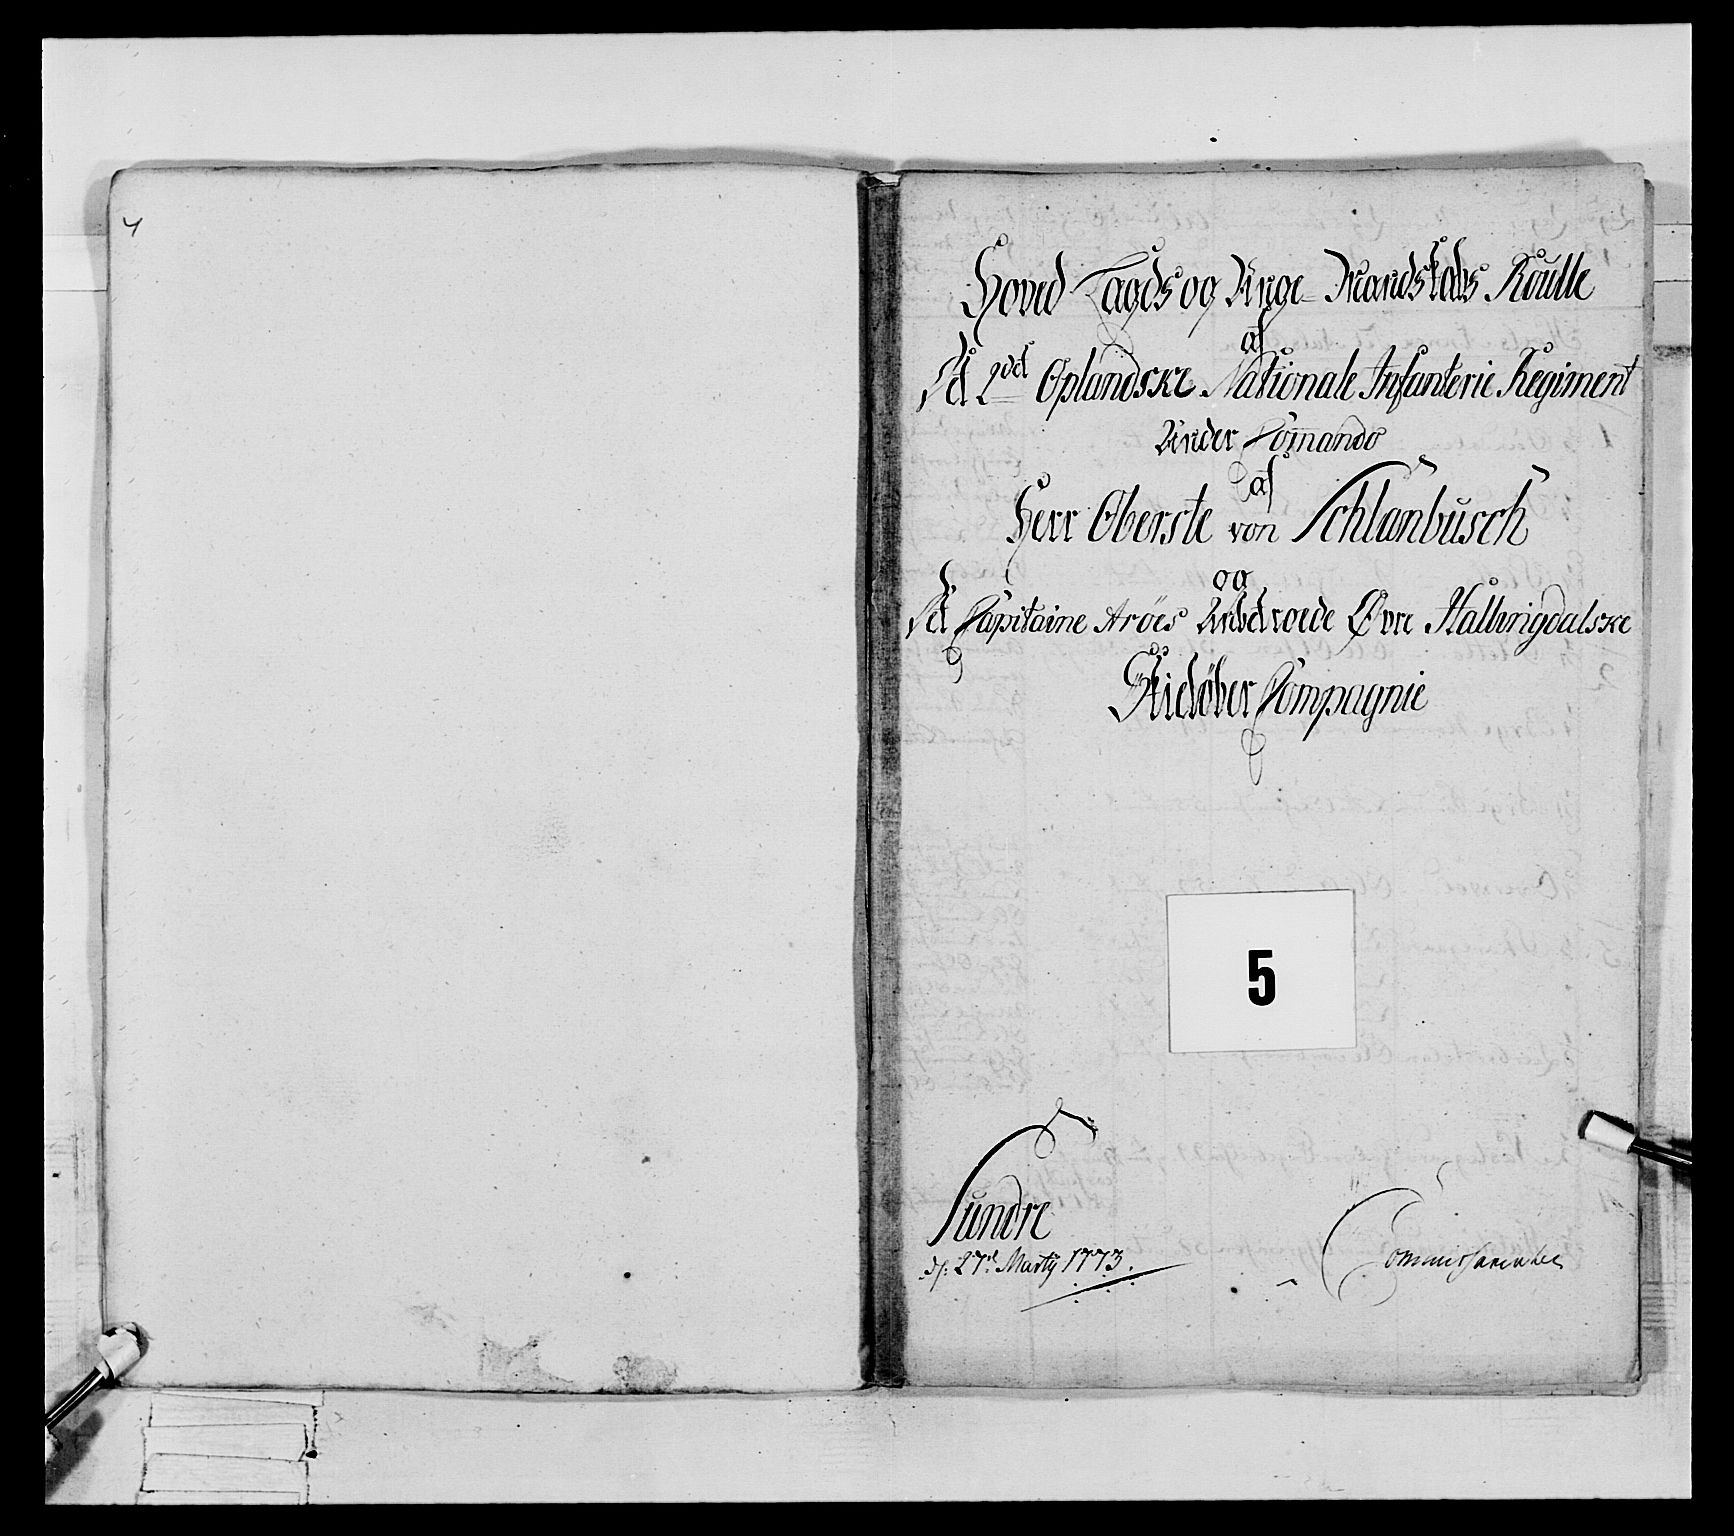 4
Hoved Lagds og Unge Mandskabs Roulle
af
Det 2det Oplandske Nationale Infanterie Regiment
Under Comando
af
Herr Oberste von Schlanbusch
og
Det Capitaine Aröes Anbetroede Øvre Hallingdalske
Skielöber Compagnie
5
Sundre
d: 27d Marty 1773.